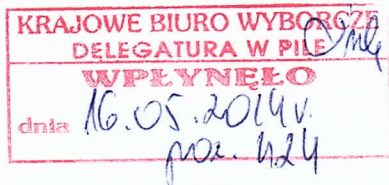 KRAJOWE BIURO WYBORCZE
DELEGATURA W PILE
WPŁYNĘŁO
dnia 16.05.2014r.
poz. 424